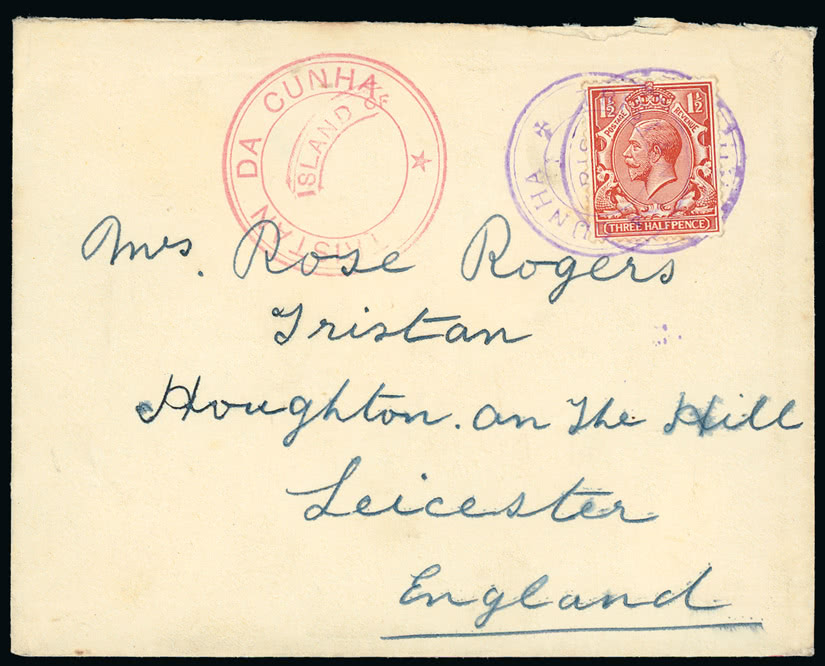 ISLAND OF
TRISTAN DA CUNHA
UNHA
1½ 1½
POSTAGE REVENUE
THREE HALFPENCE
Mrs. Rose Rogers
Tristan
Houghton. on The Hill
Leicester
England